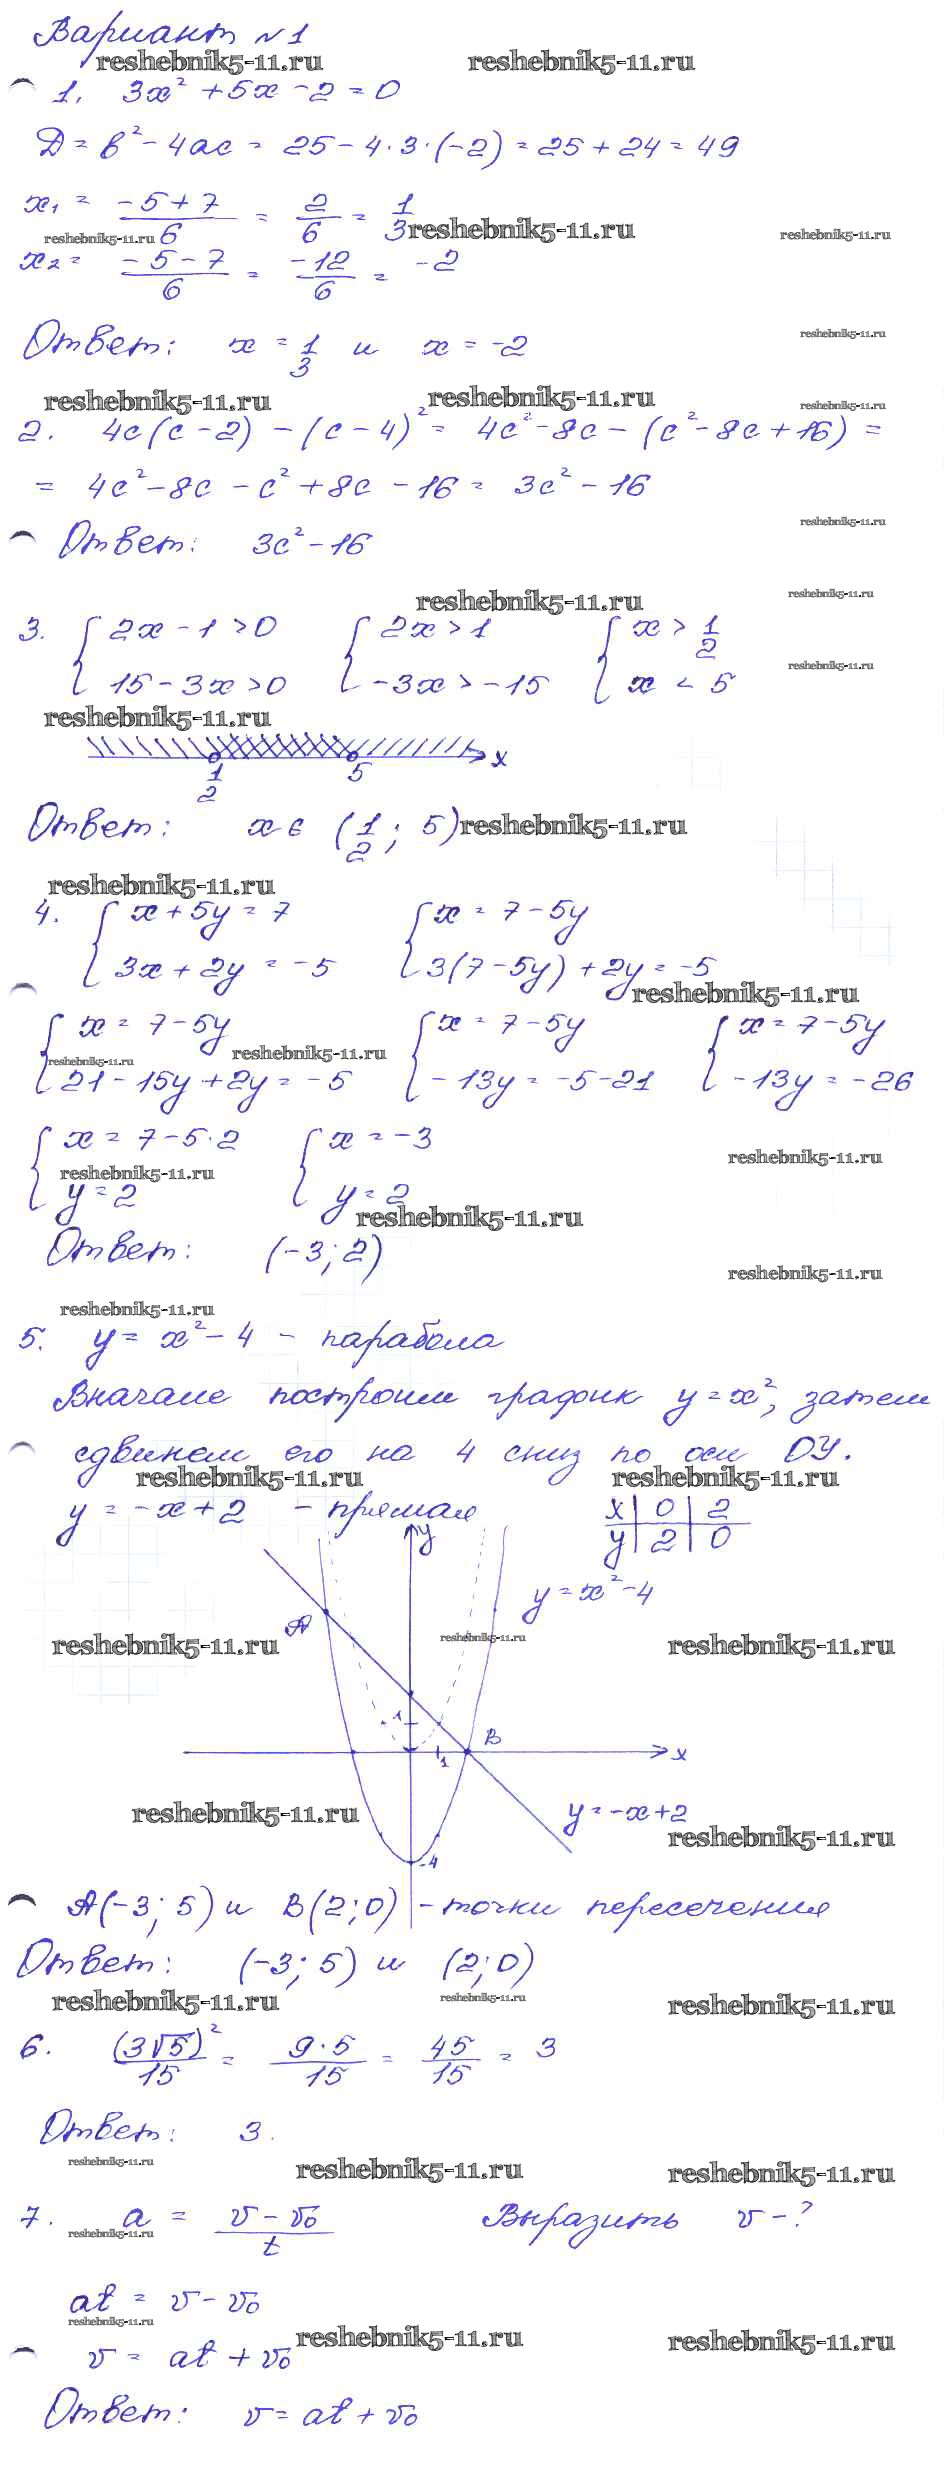 Вариант №1
reshebnik5-11.ru reshebnik5-11.ru
1. 3x² + 5x - 2 = 0
D = b² - 4ac = 25 - 4·3·(-2) = 25 + 24 = 49
x₁ = (-5+7)/6 = 2/6 = 1/3
reshebnik5-11.ru reshebnik5-11.ru reshebnik5-11.ru
x₂ = (-5-7)/6 = -12/6 = -2
Ответ: x = 1/3 и x = -2
reshebnik5-11.ru
reshebnik5-11.ru reshebnik5-11.ru reshebnik5-11.ru
2. 4c(c-2) - (c-4)² = 4c² - 8c - (c² - 8c + 16) =
= 4c² - 8c - c² + 8c - 16 = 3c² - 16
reshebnik5-11.ru
Ответ: 3c² - 16
reshebnik5-11.ru reshebnik5-11.ru
3. { 2x - 1 > 0 { 2x > 1 { x > 1/2
15 - 3x > 0 -3x > -15 x < 5
reshebnik5-11.ru
reshebnik5-11.ru
1/2 5 x
Ответ: x ∈ (1/2; 5)
reshebnik5-11.ru
reshebnik5-11.ru
4. { x + 5y = 7 { x = 7 - 5y
3x + 2y = -5 3(7-5y) + 2y = -5
reshebnik5-11.ru
{ x = 7 - 5y { x = 7 - 5y { x = 7 - 5y
reshebnik5-11.ru reshebnik5-11.ru
21 - 15y + 2y = -5 -13y = -5 - 21 -13y = -26
{ x = 7 - 5·2 { x = -3
reshebnik5-11.ru reshebnik5-11.ru
y = 2 y = 2
reshebnik5-11.ru
Ответ: (-3; 2)
reshebnik5-11.ru
reshebnik5-11.ru
5. y = x² - 4 - парабола
Вначале построим график y = x², затем
сдвинем его на 4 сниз по оси OY.
reshebnik5-11.ru reshebnik5-11.ru
y = -x + 2 - прямая
x | 0 | 2
y | 2 | 0
y
y = x² - 4
A
reshebnik5-11.ru reshebnik5-11.ru reshebnik5-11.ru
1
B
1 x
reshebnik5-11.ru
y = -x + 2
reshebnik5-11.ru
-4
A(-3; 5) и B(2; 0) - точки пересечения
Ответ: (-3; 5) и (2; 0)
reshebnik5-11.ru reshebnik5-11.ru reshebnik5-11.ru
6. (3√5)²/15 = 9·5/15 = 45/15 = 3
Ответ: 3.
reshebnik5-11.ru reshebnik5-11.ru reshebnik5-11.ru
7. a = (v - v₀)/t Выразить v - ?
reshebnik5-11.ru
at = v - v₀
reshebnik5-11.ru reshebnik5-11.ru reshebnik5-11.ru
v = at + v₀
Ответ: v = at + v₀